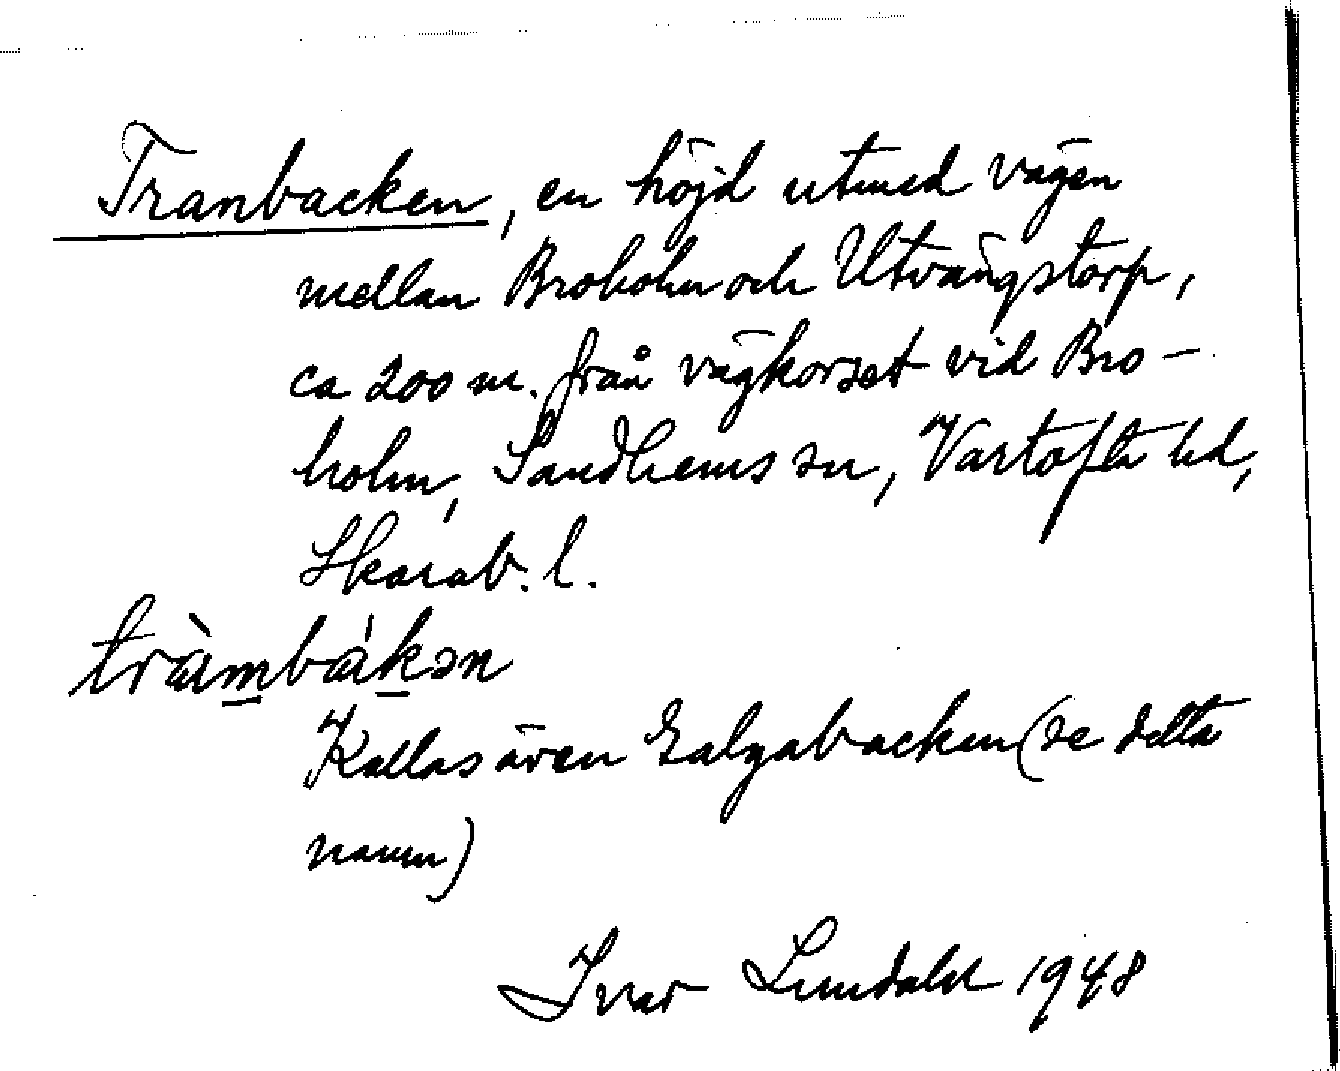 Tranbacken, en höjd utmed vägen
mellan Broholm och Utvängstorp,
ca 200 m. från vägkorset vid Bro-
holm, Sandhems sn, Vartofta hd,
Skarab. l.
tràmbákən
Kallas även Galgabacken (se detta
namn)
Ivar Lundahl 1948